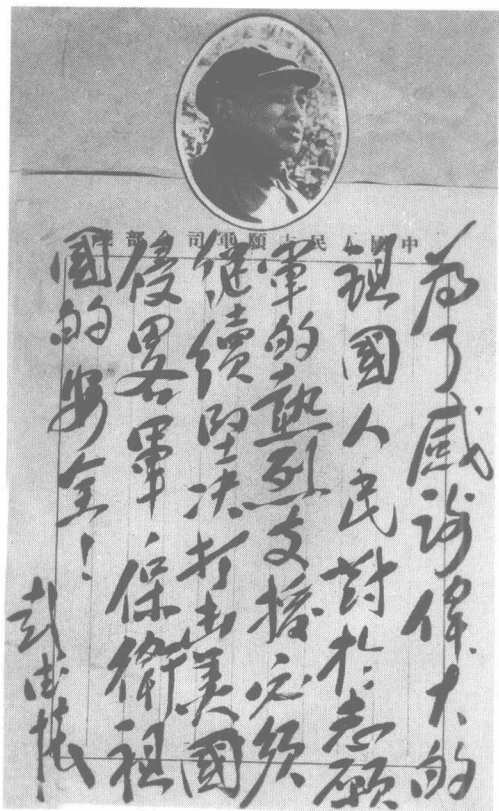 中國人民志願軍司令部
為了感謝偉大的
祖國人民對於志願
軍的熱烈支援必須
繼續堅决打击美國
侵畧軍，保衛祖
國的安全！
彭德懷